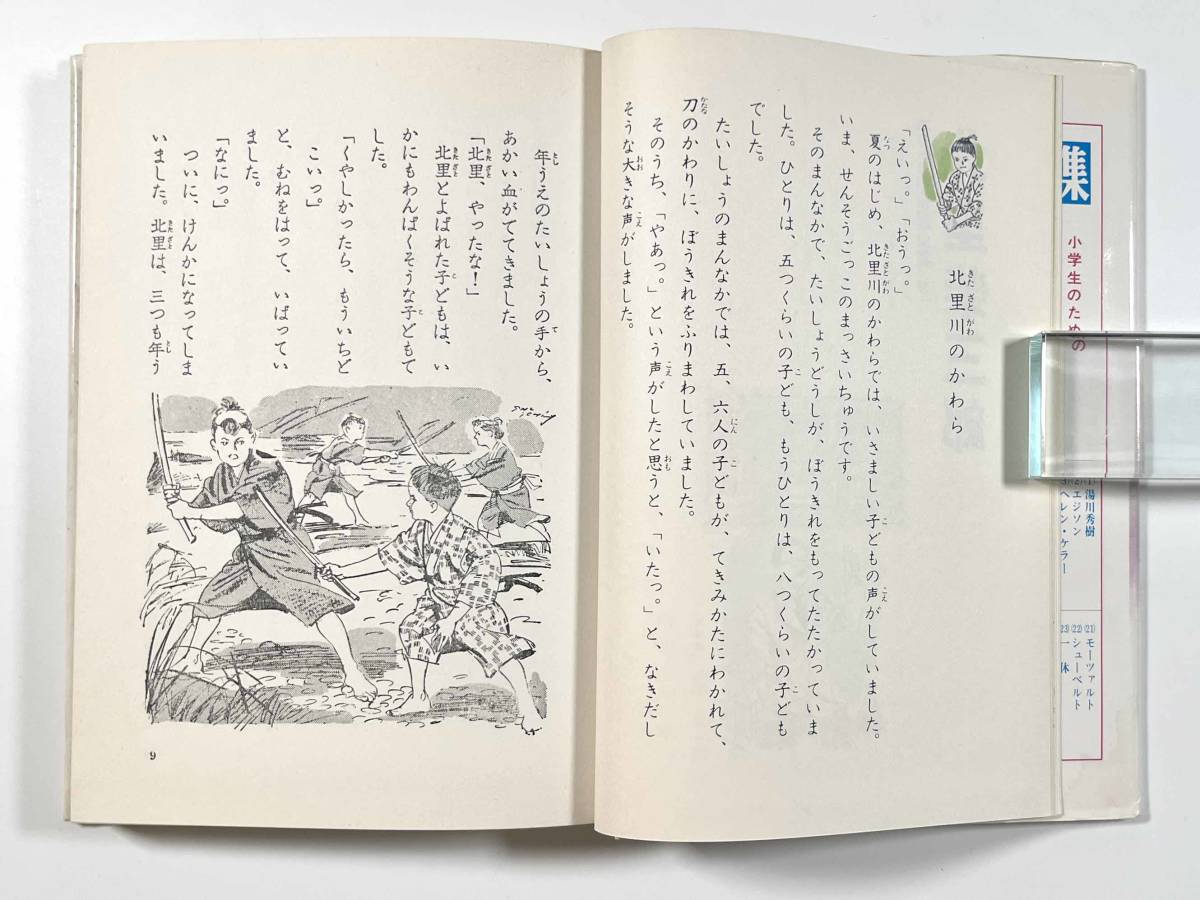 北里川のかわら
「えいっ。」「おうっ。」
夏のはじめ、北里川のかわらでは、いさましい子どもの声がしていました。
いま、せんそうごっこのまっさいちゅうです。
そのまんなかで、たいしょうどうしが、ぼうきれをもってたたかっていま
した。ひとりは、五つくらいの子ども、もうひとりは、八つくらいの子ども
でした。
たいしょうのまんなかでは、五、六人の子どもが、てきみかたにわかれて、
刀のかわりに、ぼうきれをふりまわしていました。
そのうち、「やあっ。」という声がしたと思うと、「いたっ。」と、なきだし
そうな大きな声がしました。
年うえのたいしょうの手から、
あかい血がでてきました。
「北里、やったな!」
北里とよばれた子どもは、い
かにもわんぱくそうな子どもで
した。
「くやしかったら、もういちど
こいっ。」
と、むねをはって、いばってい
ました。
「なにっ。」
ついに、けんかになってしま
いました。北里は、三つも年う
9
集
小学生のための
湯川秀樹
エジソン
ヘレン・ケラー
(21)モーツァルト
(22)シューベルト
23)一休